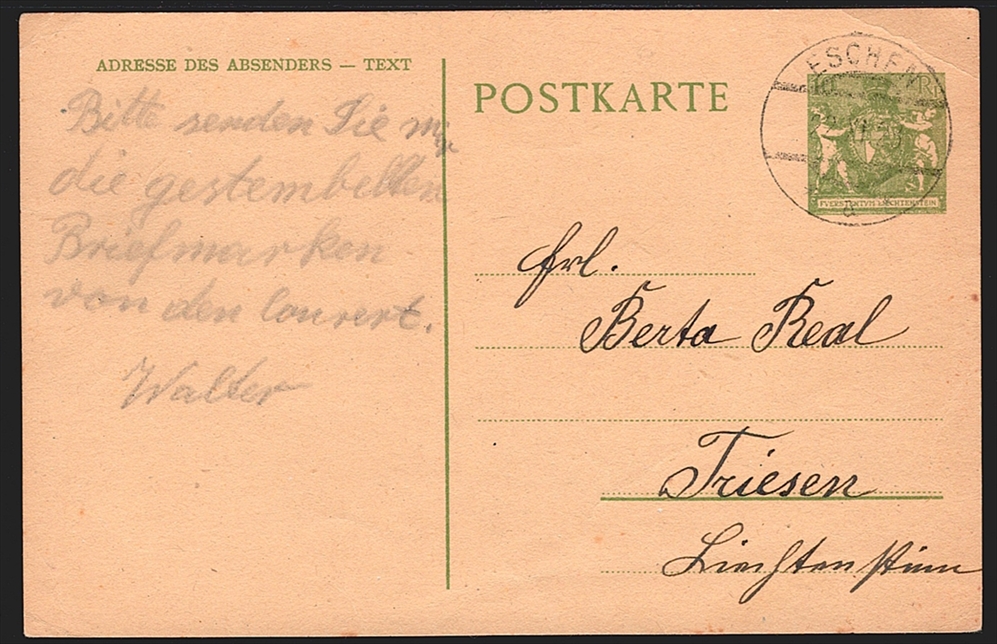 ADRESSE DES ABSENDERS — TEXT
Bitte senden Sie mir
die gestembellten
Briefmarken
von den Couvert.
Walter
POSTKARTE
ESCHEN
a
FVERSTENTVM LIECHTENSTEIN
Frl.
Berta Real
Triesen
Liechtenstein